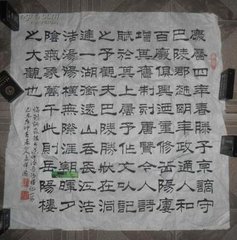 慶曆四年春滕子京謫守
巴陵郡越明年政通人和
百廢具興乃重修岳陽樓
增其舊制刻唐賢今人詩
賦於其上屬予作文以記
之予觀夫巴陵勝狀在洞
庭一湖銜遠山吞長江浩
浩湯湯橫無際涯朝暉夕
陰氣象萬千此則岳陽樓
之大觀也